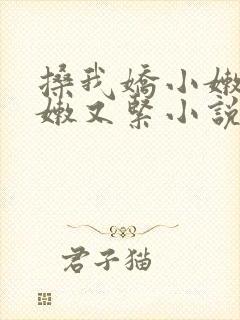 搡我嬌小嫩
嫩又緊小說
君子猫